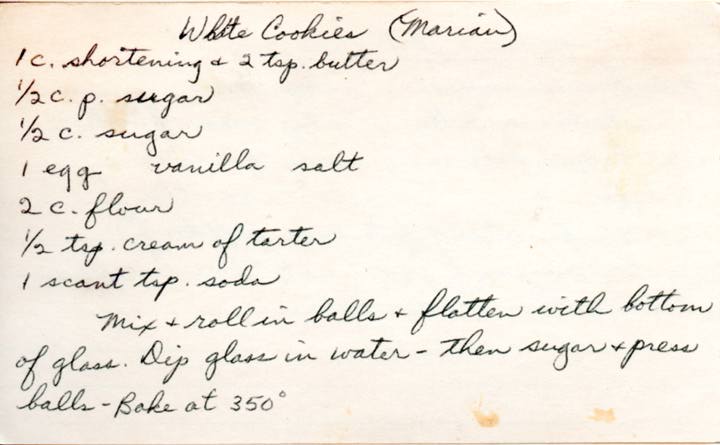 White Cookies (Marian)
1 c. shortening & 2 tsp. butter
1/2 c. p. sugar
1/2 c. sugar
1 egg vanilla salt
2 c. flour
1/2 tsp. cream of tarter
1 scant tsp. soda
Mix + roll in balls + flatten with bottom
of glass. Dip glass in water - then sugar + press
balls - Bake at 350°